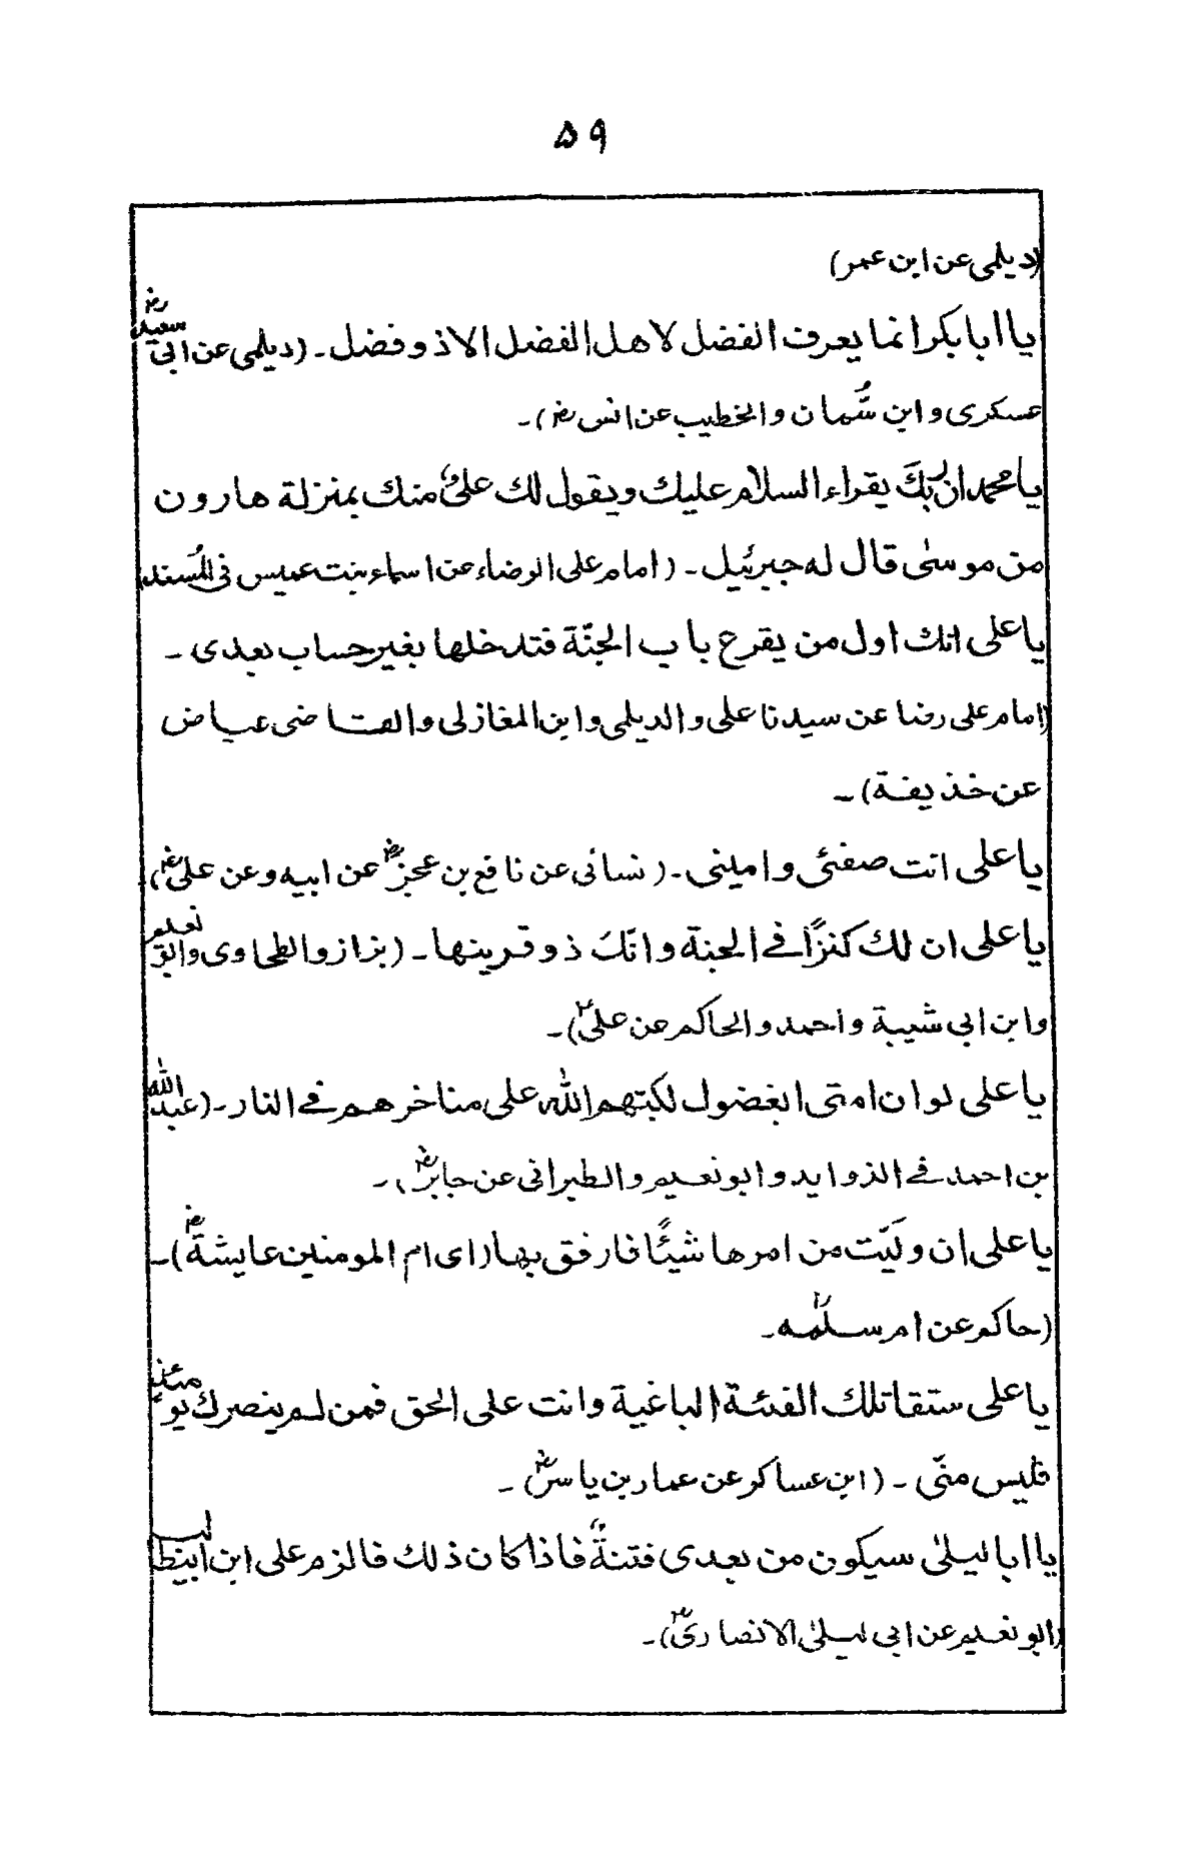 ۵۹
(دیلمی عن ابن عمر)
یا ابا بکر انما یعرف الفضل لاهل الفضل الا ذو فضل ۔ (دیلمی عن ابی سعیدرض
عسکری و ابن سُّمان و الخطیب عن انس رض)۔
یا محمد ان ربکَ یقراء السلام علیك و یقول لك علیٌ منك بمنزلة هارون
من موسیٰ قال له جبرئیل ۔ (امام علی الرضاء عن اسماء بنت عمیس فی المُسند
یا علی انك اول من یقرع باب الجنّة فتدخلها بغیر حساب بعدی ۔
(امام علی رضا عن سیدنا علی و الدیلمی و ابن المغازلی و القاضی عیاض
عن خذیفة) ۔
یا علی انت صفئی و امینی ۔ (نسائی عن نافع بن عجزرض عن ابیه و عن علیرض)
یا علی ان لك کنزًا فے الجنة و انّكَ ذو قرینها ۔ (بزاز و الطحاوی و ابو نعیم
و ابن ابی شیبة و احمد و الحاکم عن علیؓ)۔
یا علی لو ان امتی ابغضوك لکبتهم اللّٰه علی مناخرهم فے النار ۔ (عبد اللّٰه
بن احمد فے الذواید و ابو نعیم و الطبرانی عن جابررض)۔
یا علی ان ولَیّت من امرها شیئًا فارفق بها (ای ام المومنین عایشةرض)۔
(حاکم عن ام سلمٰه ۔
یا علی ستقاتلك الفئة الباغیة و انت علی الحق فمن لم ینصرك یومئذٍ
فلیس منّی ۔ (ابن عساکر عن عمار بن یاسررض) ۔
یا ابا لیلیٰ سیکون من بعدی فتنةٌ فاذا کان ذلك فالزم علی ابن ابیطالب
(ابو نعیم عن ابی لیلیٰ الانصاریرض)۔